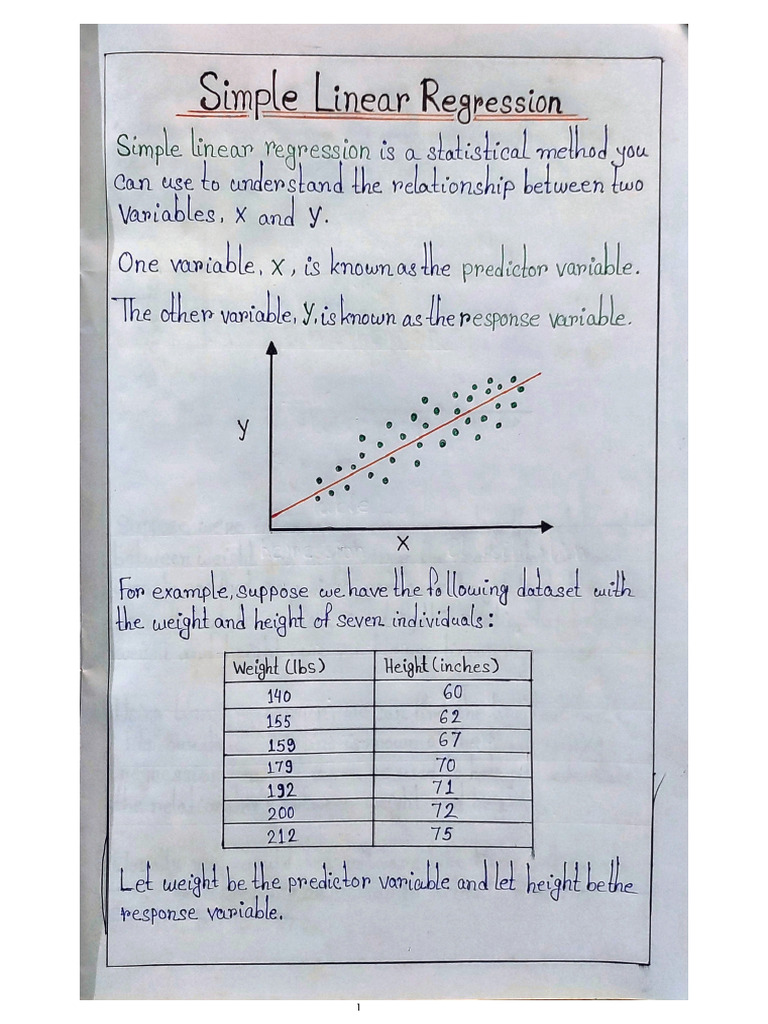 Simple Linear Regression
Simple linear regression is a statistical method you
can use to understand the relationship between two
variables, x and y.
One variable, x, is known as the predictor variable.
The other variable, y, is known as the response variable.
y
x
For example, suppose we have the following dataset with
the weight and height of seven individuals:
Weight (lbs) Height (inches)
140 60
155 62
159 67
179 70
192 71
200 72
212 75
Let weight be the predictor variable and let height be the
response variable.
1